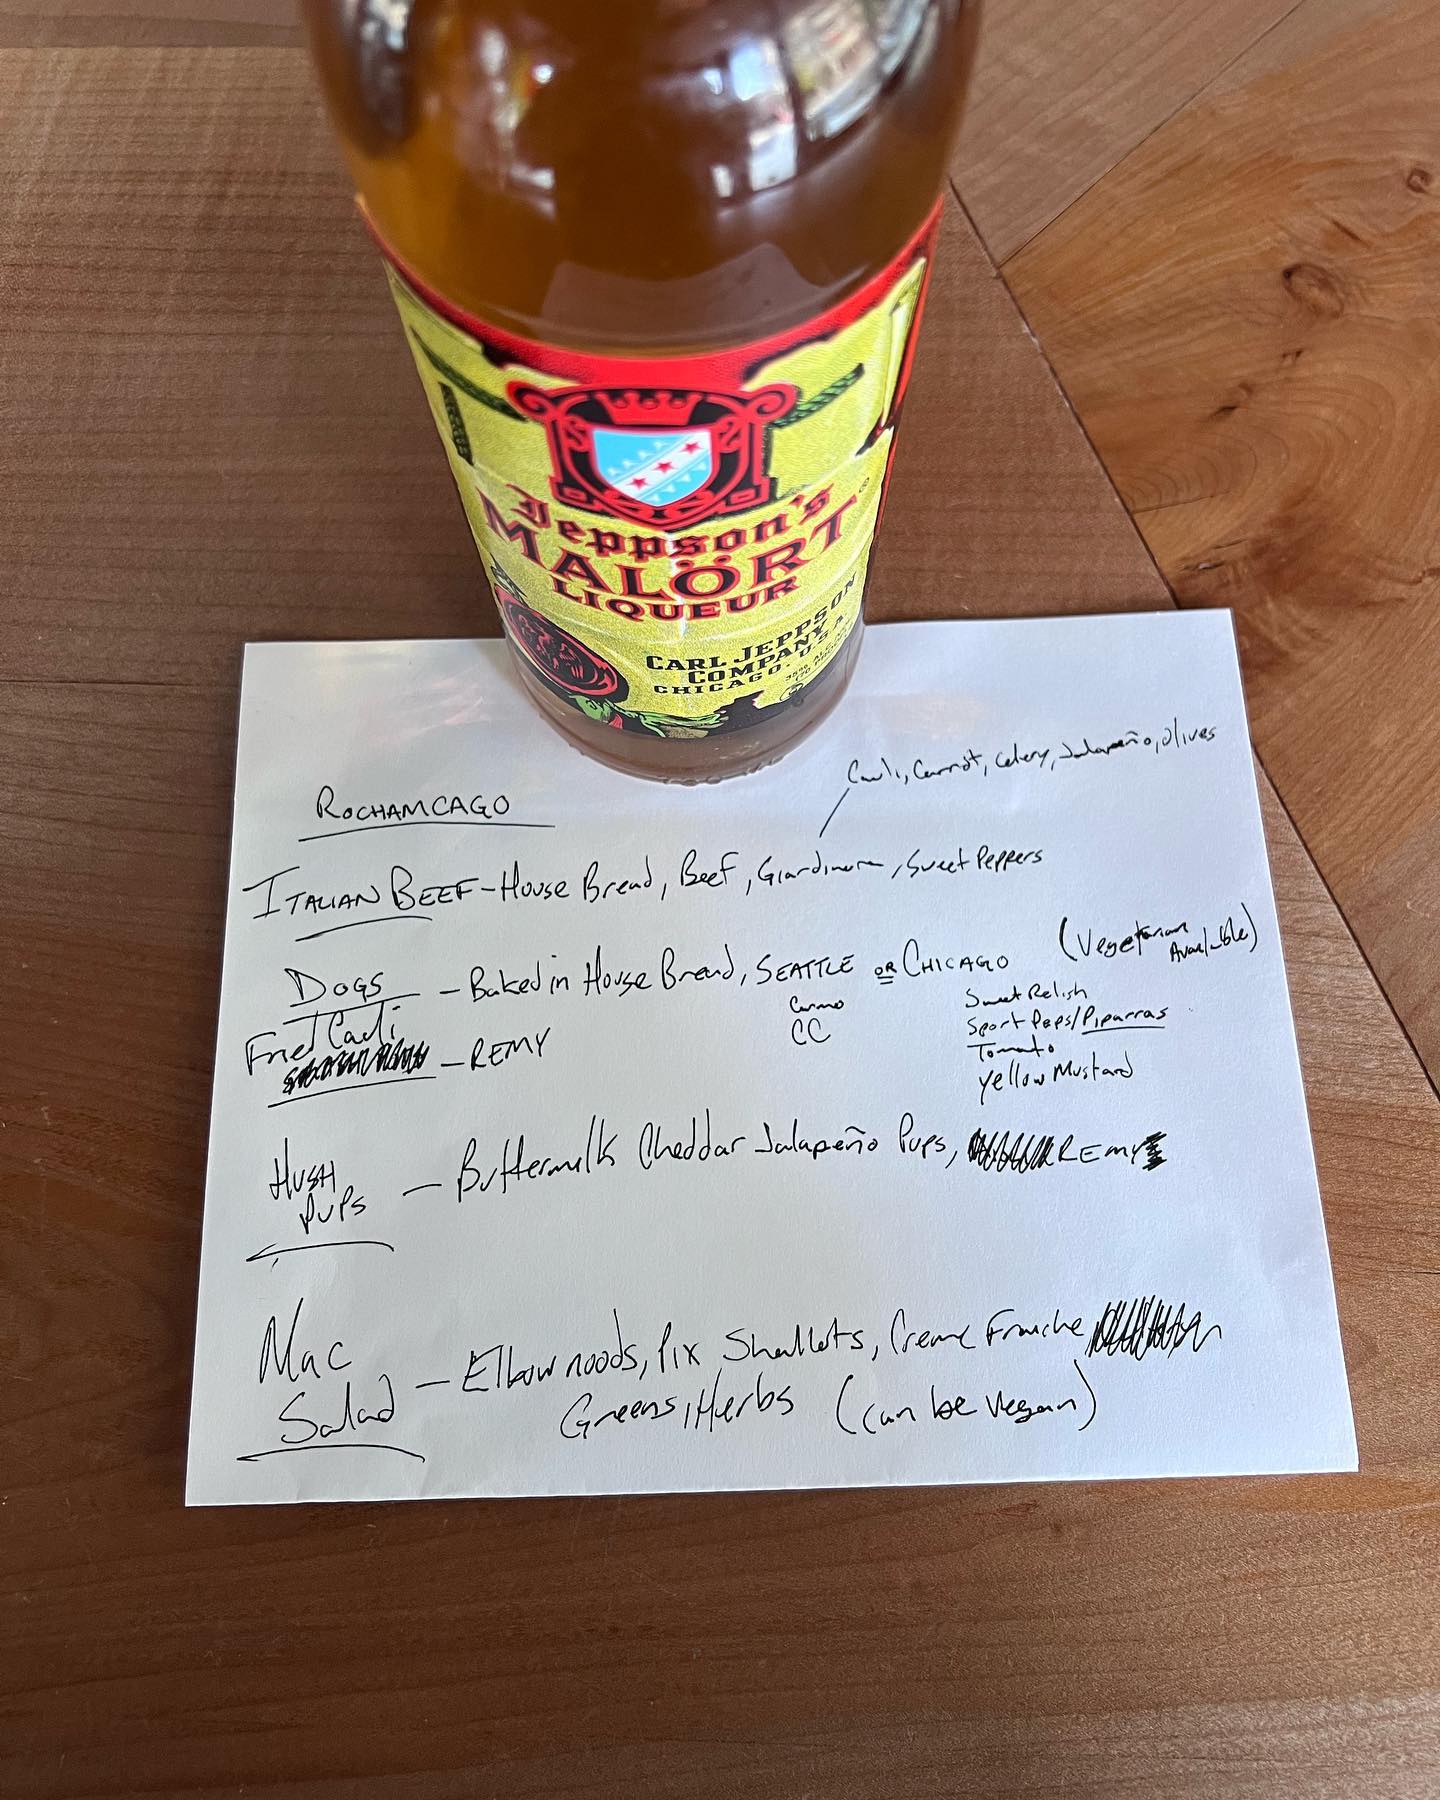 Jeppson's
MALÖRT®
LIQUEUR
CARL JEPPSON
COMPANY
CHICAGO. U.S.A
Cauli, Carrot, Celery, Jalapeño, Olives
ROCHAMCAGO
ITALIAN BEEF - House Bread, Beef, Giardinera, Sweet Peppers
(Vegetarian
Available)
DOGS - Baked in House Bread, SEATTLE OR CHICAGO
CC
Sweet Relish
Sport Peps/Piparras
Tomato
Yellow Mustard
Fried Cauli - REMY
HUSH
PUPS - Buttermilk Cheddar Jalapeño Pups, REMY
Mac
Salad - Elbow noods, Pix Shallots, Creme Fraiche
Greens, Herbs (can be vegan)